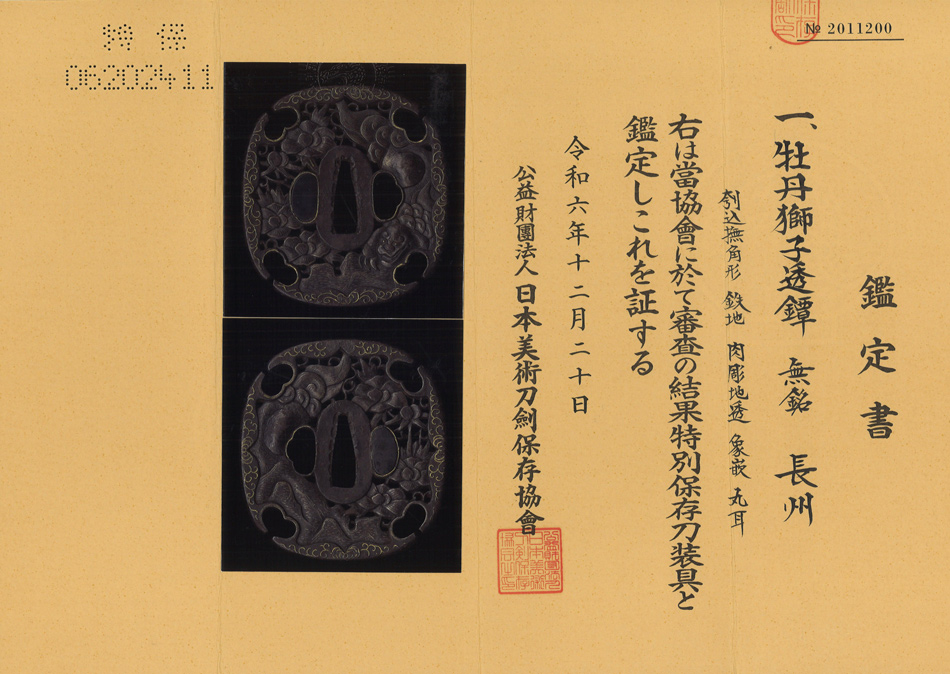 № 2011200
鑑定書
一、牡丹獅子透鐔 無銘 長州
刳込撫角形 鉄地 肉彫地透 象嵌 丸耳
右は當協會に於て審査の結果特別保存刀装具と
鑑定しこれを証する
令和六年十二月二十日
公益財團法人日本美術刀劍保存協會
特 保
06202411